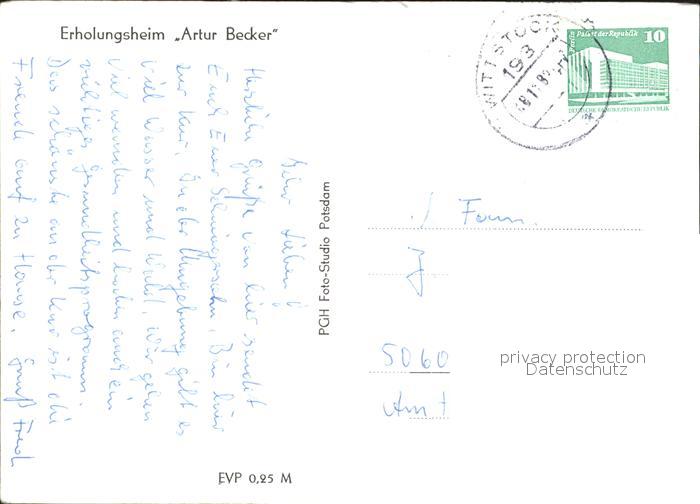 Erholungsheim „Artur Becker“
Berlin Palast der Republik
10
DEUTSCHE DEMOKRATISCHE REPUBLIK
WITTSTOCK
193
Ihr Lieben!
Herzliche Grüße von hier sendet
Euch Euer Schwiegersohn. Bin hier
zur Kur. In der Umgebung gibt es
viel Wasser und Wald. Wir gehen
viel wandern und haben auch ein
Gesundheitsprogramm.
Das schönste an der Kur ist die
Freude auf zu Hause. Gruß Fred
PGH Foto-Studio Potsdam
Fam.
5060
Amt
privacy protection
Datenschutz
EVP 0,25 M